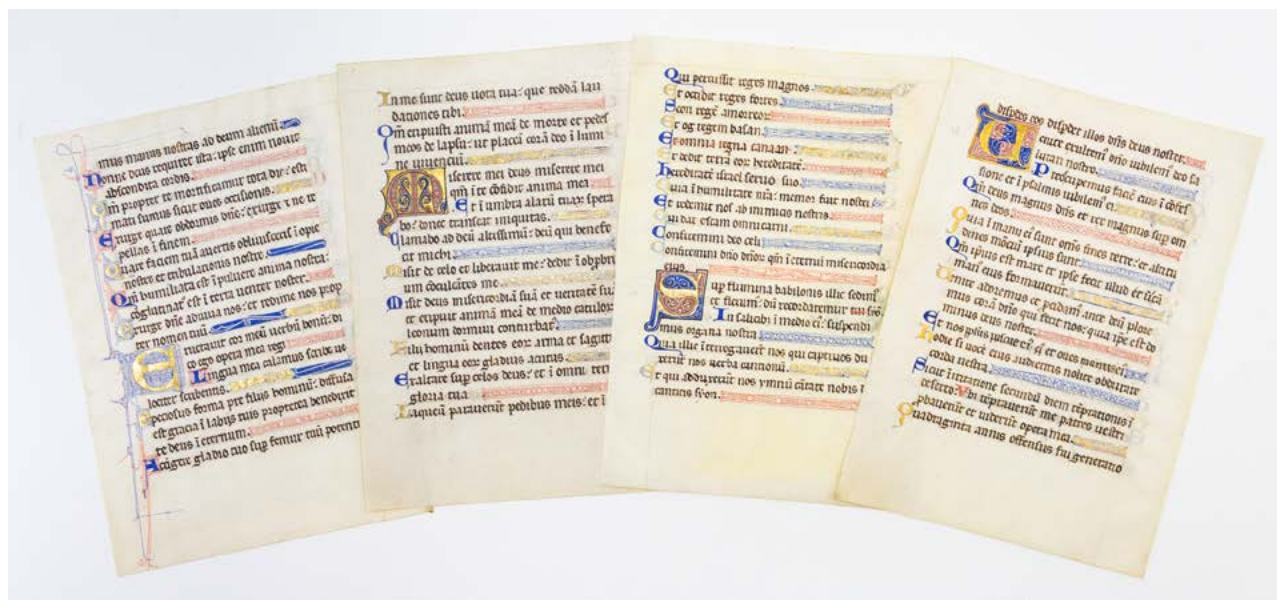 mus manus nostras ad deum alienũ
Nonne deus requiret ista: ipse enim nouit
abscondita cordis
Qm̃ propter te mortificamur tota die: esti
mati sumus sicut oues occisionis
Exurge quare obdormis dñe: exurge ⁊ ne re
pellas ĩ finem
Quare faciem tuã auertis obliuisceris ĩopie
nostre et tribulationis nostre
Qm̃ humiliata est ĩ puluere anima nostra:
cõglutinat' est ĩ terra uenter noster
Exurge dñe adiuua nos: et redime nos prop
ter nomen tuũ
Eructauit cor meũ uerbũ bonũ: di
co ego opera mea regi
Lingua mea calamus scribe ue
lociter scribentis
Speciosus forma pre filiis hominũ: diffusa
est gracia ĩ labiis tuis propterea benedixit
te deus ĩ eternum
Accĩgere gladio tuo suꝑ femur tuũ potenti
In me sunt deus uota tua: que reddã lau
dationes tibi
Qm̃ eripuisti animã meã de morte et pedes
meos de lapsu: ut placeã corã deo ĩ lumi
ne uiuenciũ
Miserere mei deus miserere mei
qm̃ ĩ te cõfidit anima mea
Et ĩ umbra alarũ tuaꝝ spera
bo: donec transeat iniquitas
Clamabo ad deũ altissimũ: deũ qui benefe
cit michi
Misit de celo et liberauit me: dedit ĩ obprobri
um cõculcãtes me
Misit deus misericordiã suã et ueritatẽ suã
et eripuit animã meã de medio catuloꝝ
leonum dormiui conturbat'
Filij hominũ dentes eoꝝ arma et sagitte
et lingua eoꝝ gladius acutus
Exaltare suꝑ celos deus: et ĩ omni terra
gloria tua
Laqueũ parauerũt pedibus meis: et ĩ
Qui percussit reges magnos
Et occidit reges fortes
Seon regẽ amoreoꝝ
Et og regem basan
Et omnia regna canaan
Et dedit terrã eoꝝ hereditatẽ
Hereditatẽ israel seruo suo
Quia ĩ humilitate nr̃a: memor fuit nostri
Et redemit nos ab inimicis nostris
Qui dat escam omni carni
Confitemini deo celi
Confitemini dño dñoꝝ qm̃ ĩ eternũ misericordia
eius
Suꝑ flumina babilonis illic sedim'
et fleuim': dũ recordaremur tui syõ
In salicib' ĩ medio ei': suspendi
mus organa nostra
Quia illic ĩterrogauerũt nos qui captiuos du
xerũt nos uerba cantionũ
Et qui abduxerũt nos ymnũ cãtate nobis d
canticis syon
disperdet eos disperdet illos dñs deus noster
Uenite exultem' dño iubilem' deo sa
lutari nostro
Preoccupemus faciẽ eius ĩ cõfes
sione et ĩ psalmis iubilem' ei
Qm̃ deus magnus dñs et rex magnus suꝑ om
nes deos
Quia ĩ manu ei' sunt om̃s fines terre: et altitu
dines mõtiũ ipsius sunt
Qm̃ ipsius est mare et ipse fecit illud et siccã
man' eius formauerũt
Uenite adoremus et ꝓcidam' ante deũ plore
mus corã dño qui fecit nos: quia ipe est do
minus deus noster
Et nos plus ipsius ⁊ oues manus ei'
Hodie si uocẽ eius audieritis nolite obdurare
corda uestra
Sicut ĩ irritatione secundũ diem tẽptationis ĩ
deserto: Ubi tẽptauerũt me patres uestri
ꝓbauerũt et uiderũt opera mea
Quadraginta annis offensus fui generatio